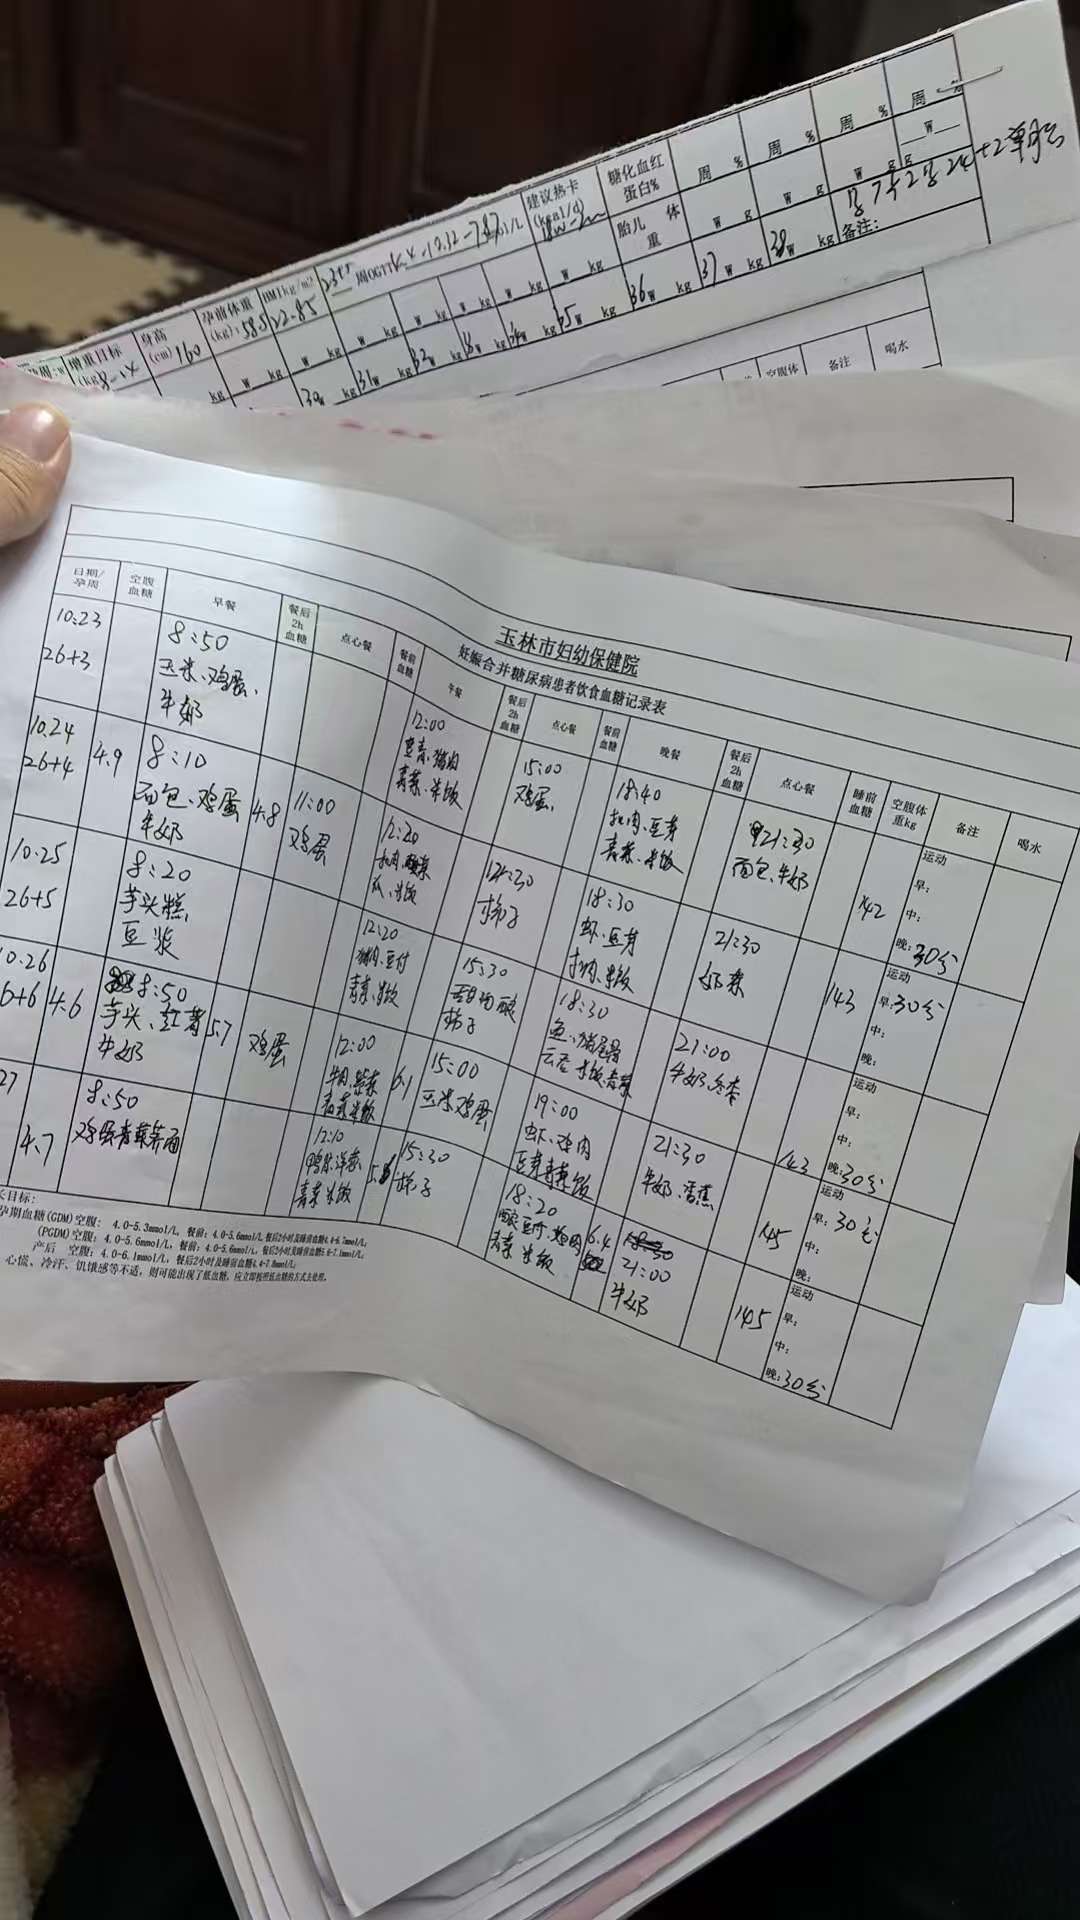 增重目标
(kg)8-14
身高
(cm)160
孕前体重
(kg):58.5
BMI(kg/m²)
22.85
周OGTT
建议热卡
(kcal/d)
糖化血红
蛋白%
周 %
周 %
周 %
周 %
胎儿体
重
W g
W g
W g
W
kg
W kg
W kg
W kg
W kg
W kg
W kg
30W kg
31W kg
32W kg
W kg
34W kg
35W kg
36W kg
37W kg
38W kg
备注:
空腹体
备注
喝水
玉林市妇幼保健院
妊娠合并糖尿病患者饮食血糖记录表
日期/
孕周
空腹
血糖
早餐
餐后
2h
血糖
点心餐
餐前
血糖
午餐
餐后
2h
血糖
点心餐
餐前
血糖
晚餐
餐后
2h
血糖
点心餐
睡前
血糖
空腹体
重kg
备注
喝水
10.23
26+3
8:50
玉米、鸡蛋、
牛奶
12:00
青菜、米饭
15:00
鸡蛋
18:40
扣肉、豆芽
青菜、米饭
21:30
面包、牛奶
142
运动
早:
中:
晚:30分
10.24
26+4
4.9
8:10
面包、鸡蛋
牛奶
4.8
11:00
鸡蛋
12:20
瓜、米饭
柿子
18:30
虾、豆芽
扣肉、米饭
21:30
143
运动
早:30分
中:
晚:
10.25
26+5
8:20
芋头糕
豆浆
12:20
猪肉、豆付
青菜、米饭
15:30
柿子
18:30
21:00
牛奶、冬枣
143
运动
早:
中:
晚:30分
10.26
6+6
4.6
8:50
芋头、红薯
牛奶
5.7
鸡蛋
12:00
青菜米饭
6.1
15:00
玉米鸡蛋
19:00
虾、鸡肉
豆芽青菜饭
21:30
牛奶、香蕉
145
运动
早:30分
中:
晚:
27
4.7
8:50
鸡蛋青菜荞面
12:10
青菜米饭
15:30
柿子
18:20
青菜、米饭
6.4
21:00
牛奶
145
运动
早:
中:
晚:30分
长目标:
孕期血糖(GDM)空腹: 4.0-5.3mmol/L, 餐前: 4.0-5.6mmol/L, 餐后2小时及睡前血糖4.4-6.7mmol/L;
(PGDM)空腹: 4.0-5.6mmol/L, 餐前: 4.0-5.6mmol/L, 餐后2小时及睡前血糖5.6-7.1mmol/L;
产后 空腹: 4.0-6.1mmol/L, 餐后2小时及睡前血糖4.4-7.8mmol/L;
心慌、冷汗、饥饿感等不适，则可能出现了低血糖，应立即按照低血糖的方式去处理。